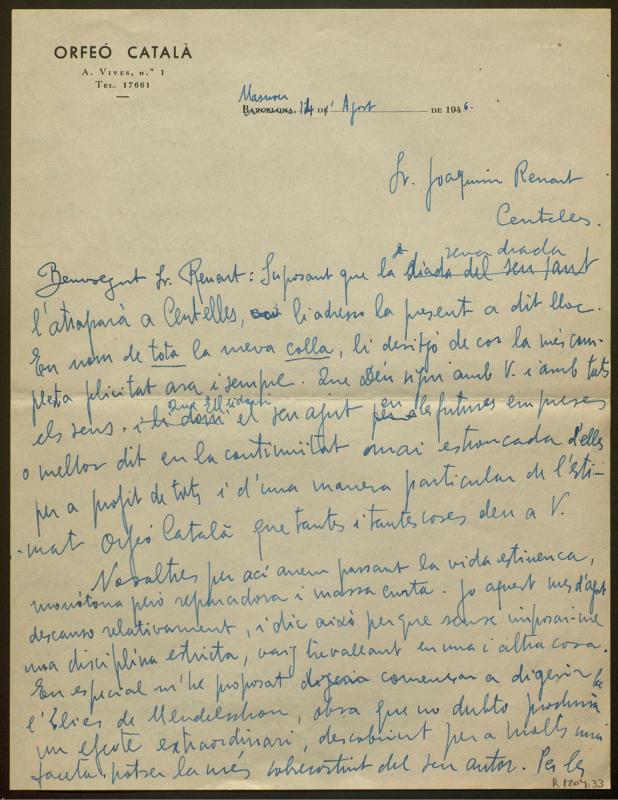 ORFEÓ CATALÀ
A. Vives, n.º 1
Tel. 17661
Masnou
Barcelona, 14 de Agost de 1946.
Sr. Joaquim Renart
Centelles.
seva diada
Benvolgut Sr. Renart: Suposant que la diada del seu sant
l'atraparà a Centelles, li adreço la present a dit lloc.
En nom de tota la meva colla, li desitjo de cor la més com-
pleta felicitat ara i sempre. Que Déu sigui amb V. i amb tots
Que Ell li doni
els seus. i li doni el seu ajut en les futures empreses
o mellor dit en la continuitat mai estroncada d'elles
per a profit de tots i d'una manera particular de l'esti-
mat Orfeó Català que tantes i tantes coses deu a V.
Nosaltres per ací anem passant la vida estiuenca,
monòtona però reparadora i massa curta. Jo aquest mes d'agost
descanso relativament, i dic això perque sense imposar-me
una disciplina estricta, vaig treballant en una i altra cosa.
En especial m'he proposat començar a digerir be
l'Elies de Mendelschon, obra que no dubto produirà
un efecte extraordinari, descobrint per a molts una
faceta potser la més sobresortint del seu autor. Per les
R 1204.33